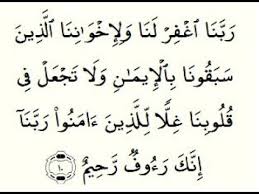 رَبَّنَا ٱغْفِرْ لَنَا وَلِإِخْوَٰنِنَا ٱلَّذِينَ
سَبَقُونَا بِٱلْإِيمَـٰنِ وَلَا تَجْعَلْ فِى
قُلُوبِنَا غِلًّا لِّلَّذِينَ ءَامَنُوا۟ رَبَّنَآ
إِنَّكَ رَءُوفٌ رَّحِيمٌ ١٠